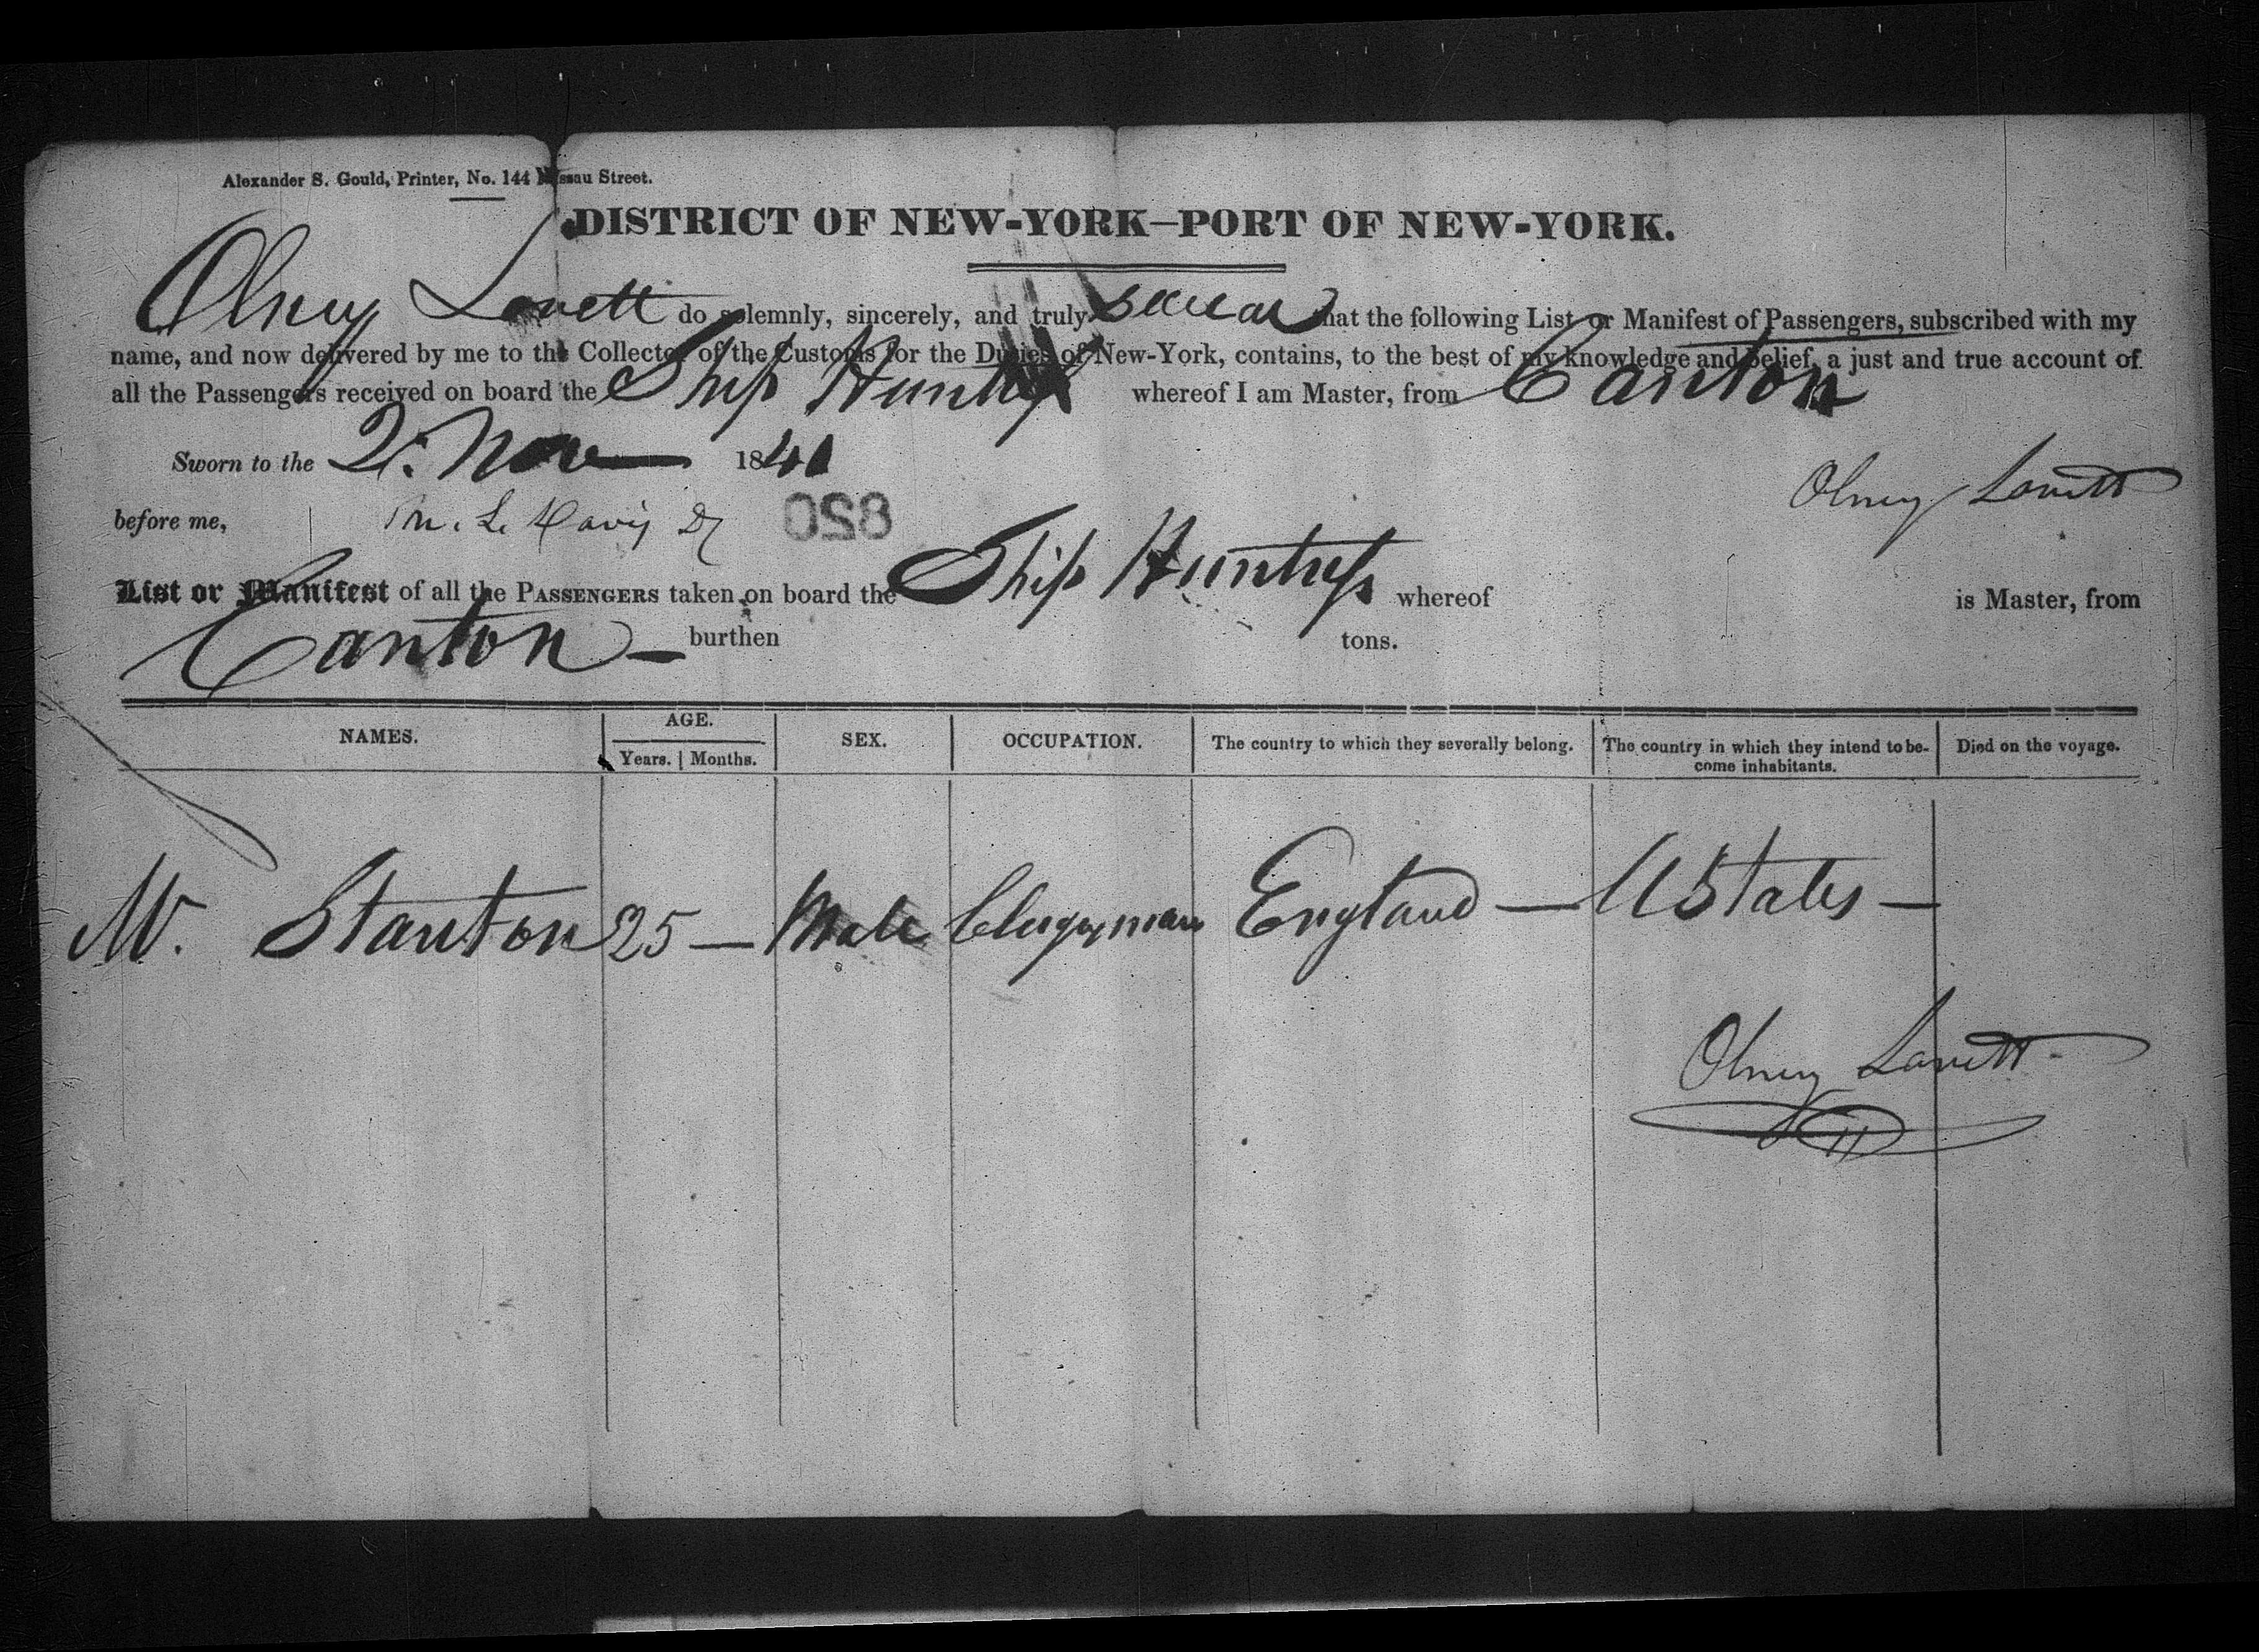 Alexander S. Gould, Printer, No. 144 Nassau Street.
DISTRICT OF NEW-YORK—PORT OF NEW-YORK.
Olney Lovett do solemnly, sincerely, and truly swear that the following List or Manifest of Passengers, subscribed with my
name, and now delivered by me to the Collector of the Customs for the Duties of New-York, contains, to the best of my knowledge and belief, a just and true account of
all the Passengers received on board the Ship Huntress whereof I am Master, from Canton
Sworn to the 2. Nov 1841
Olney Lovett
before me, M. L. Davis
820
List or Manifest of all the PASSENGERS taken on board the Ship Huntress whereof is Master, from
Canton — burthen tons.
NAMES. AGE. SEX. OCCUPATION. The country to which they severally belong. The country in which they intend to be- Died on the voyage.
Years. | Months. come inhabitants.
W. Stanton 25 — Male Clergyman England — U States —
Olney Lovett